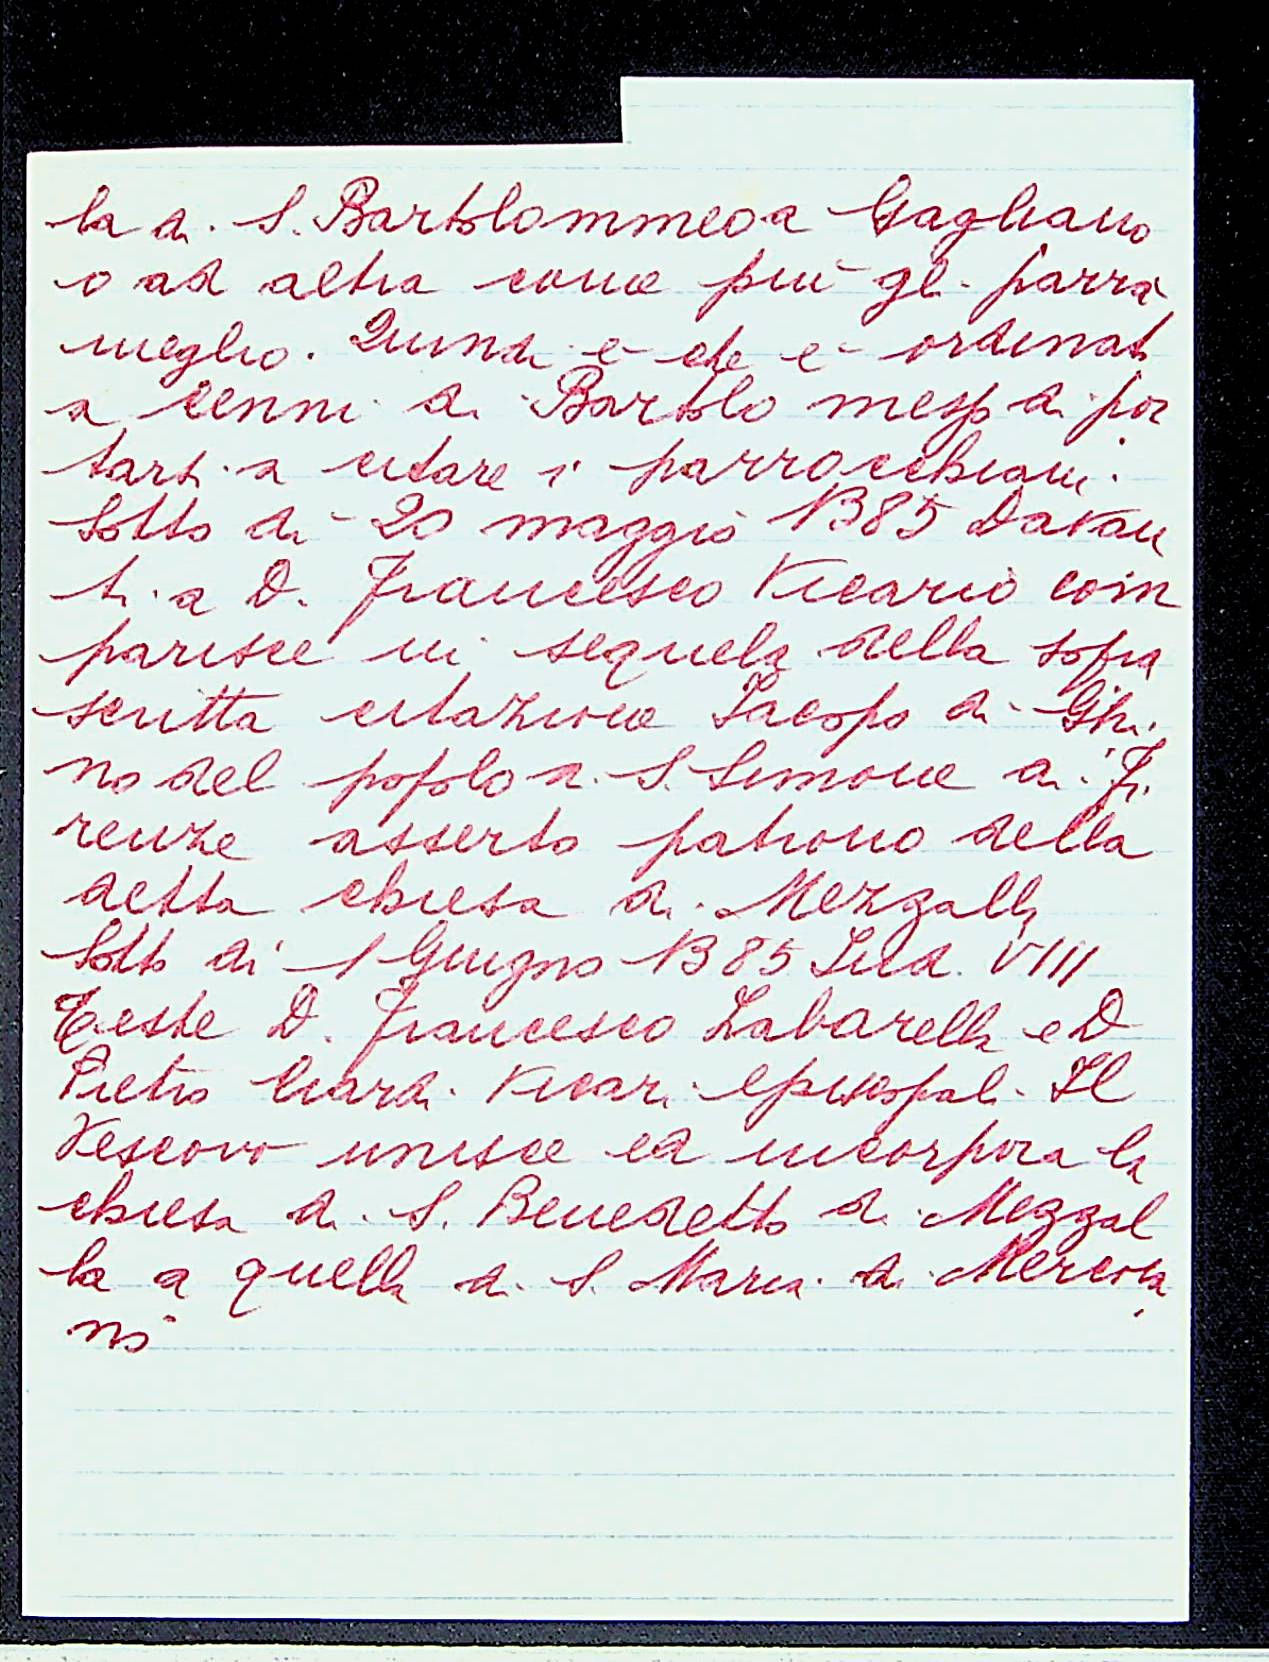 la di S. Bartolommeo a Gagliano
o ad altra come più gli parrà
meglio. Quindi è che è ordinato
a Cenni di Bartolo messo di por
tarsi a citare i parrocchiani.
Sotto di 20 maggio 1385 Davan
ti a D. Francesco Vicario com
parisce in sequela della sopra
scritta citazione Iacopo di Ghi
no del popolo di S. Simone di Fi
renze asserto patrono della
detta chiesa di Mezzalla
Sotto di 1 Giugno 1385 Ind. VIII
Teste D. Francesco Zabarella e D
Pietro Ciardi Vicari Episcopali Il
Vescovo unisce ed incorpora la
chiesa di S. Benedetto di Mezzal
la a quella di S. Maria di Mercoia
no